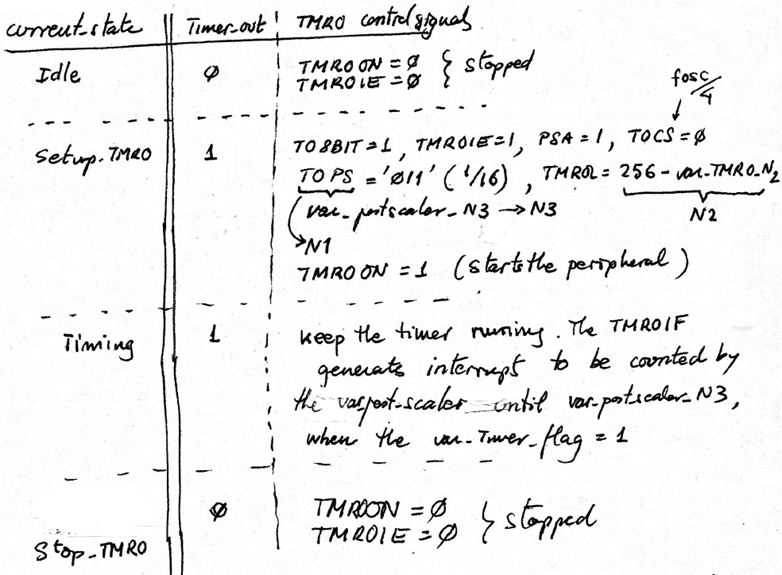 current_state Timer_out TMR0 control signals
Idle Ø TMR0ON = Ø } stopped
TMR0IE = Ø
fosc/4
Setup_TMR0 1 T08BIT = 1, TMR0IE = 1, PSA = 1, T0CS = Ø
T0PS = 'Ø11' (1/16), TMR0L = 256 - var_TMR0_N2
var_postscaler_N3 → N3 N2
N1
TMR0ON = 1 (starts the peripheral)
Timing 1 keep the timer running. The TMR0IF
generates interrupt to be counted by
the var_post_scaler until var_postscaler_N3,
when the var_Timer_flag = 1
Ø TMR0ON = Ø } stopped
Stop_TMR0 TMR0IE = Ø